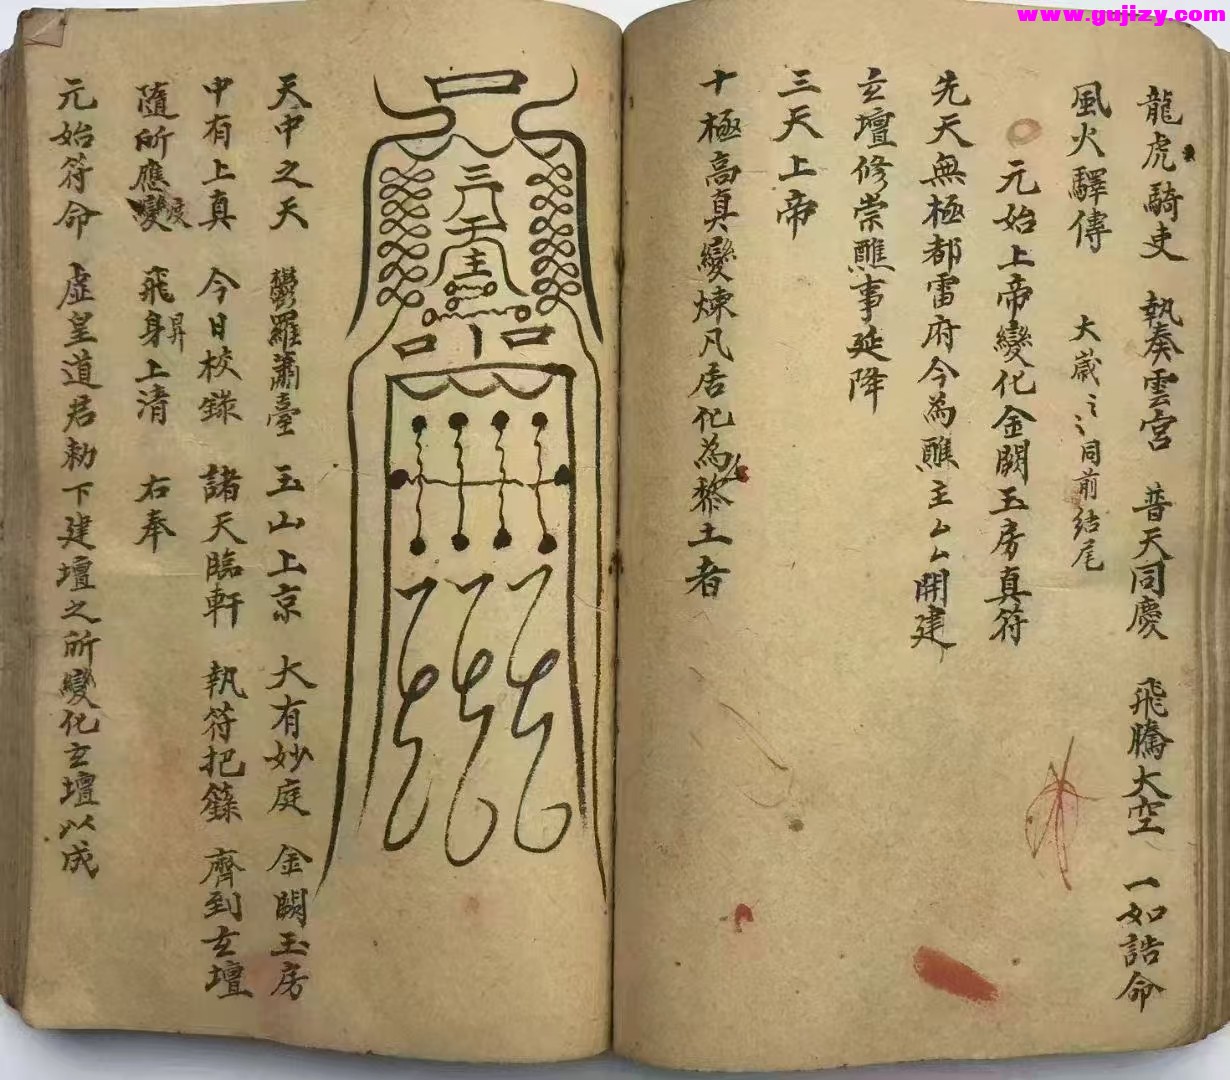 www.gujizy.com
龍虎騎吏 執奏雲宮 普天同慶 飛騰太空 一如誥命
風火驛傳 大歲〻〻同前結尾
元始上帝變化金闕玉房真符
先天無極都雷府今為醮主厶厶開建
玄壇修崇醮事延降
三天上帝
十極高真變煉凡居化為黎土者
三天
主
天中之天 鬱羅蕭臺 玉山上京 大有妙庭 金闕玉房
中有上真 今日校錄 諸天臨軒 執符把籙 齊到玄壇
隨所應變度 飛身昇上清 右奉
元始符命 虛皇道君勅下建壇之所變化玄壇以成